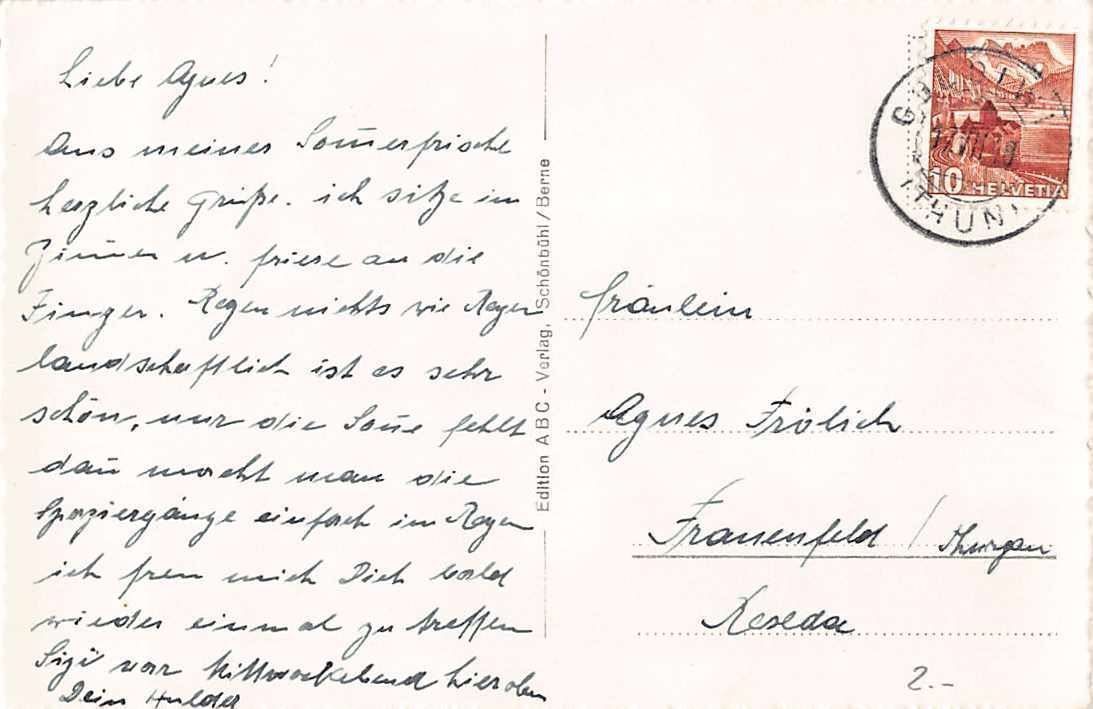 Liebe Agnes!
Aus meiner Som̄erfrische
herzliche Grüße. ich sitze im
Zim̄er u. friere an die
Finger. Regen nichts wie Regen
landschaftlich ist es sehr
schön, nur die Son̄e fehlt
dan̄ macht man die
Spaziergänge einfach im Regen
ich freu mich Dich bald
wieder einmal zu treffen
war hier oben
Dein
Edition ABC - Verlag, Schönbühl / Berne
HELVETIA
10
(THUN)
Fräulein
Agnes Frölich
Frauenfeld / Thurgau
Reseda
2.-